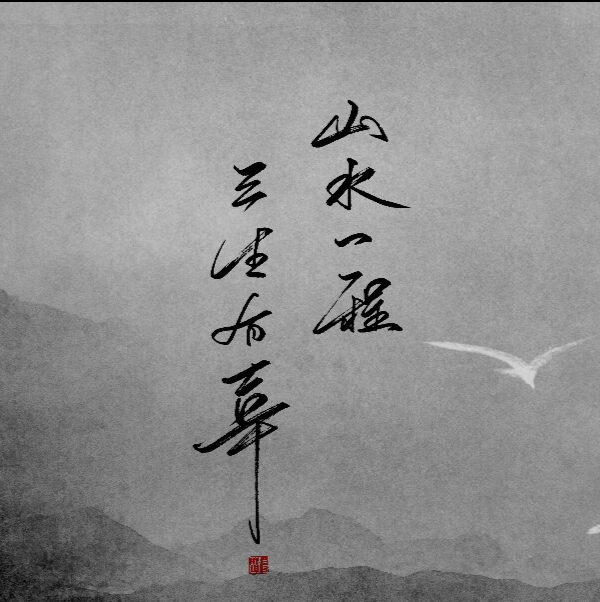 山水一程
三生有幸